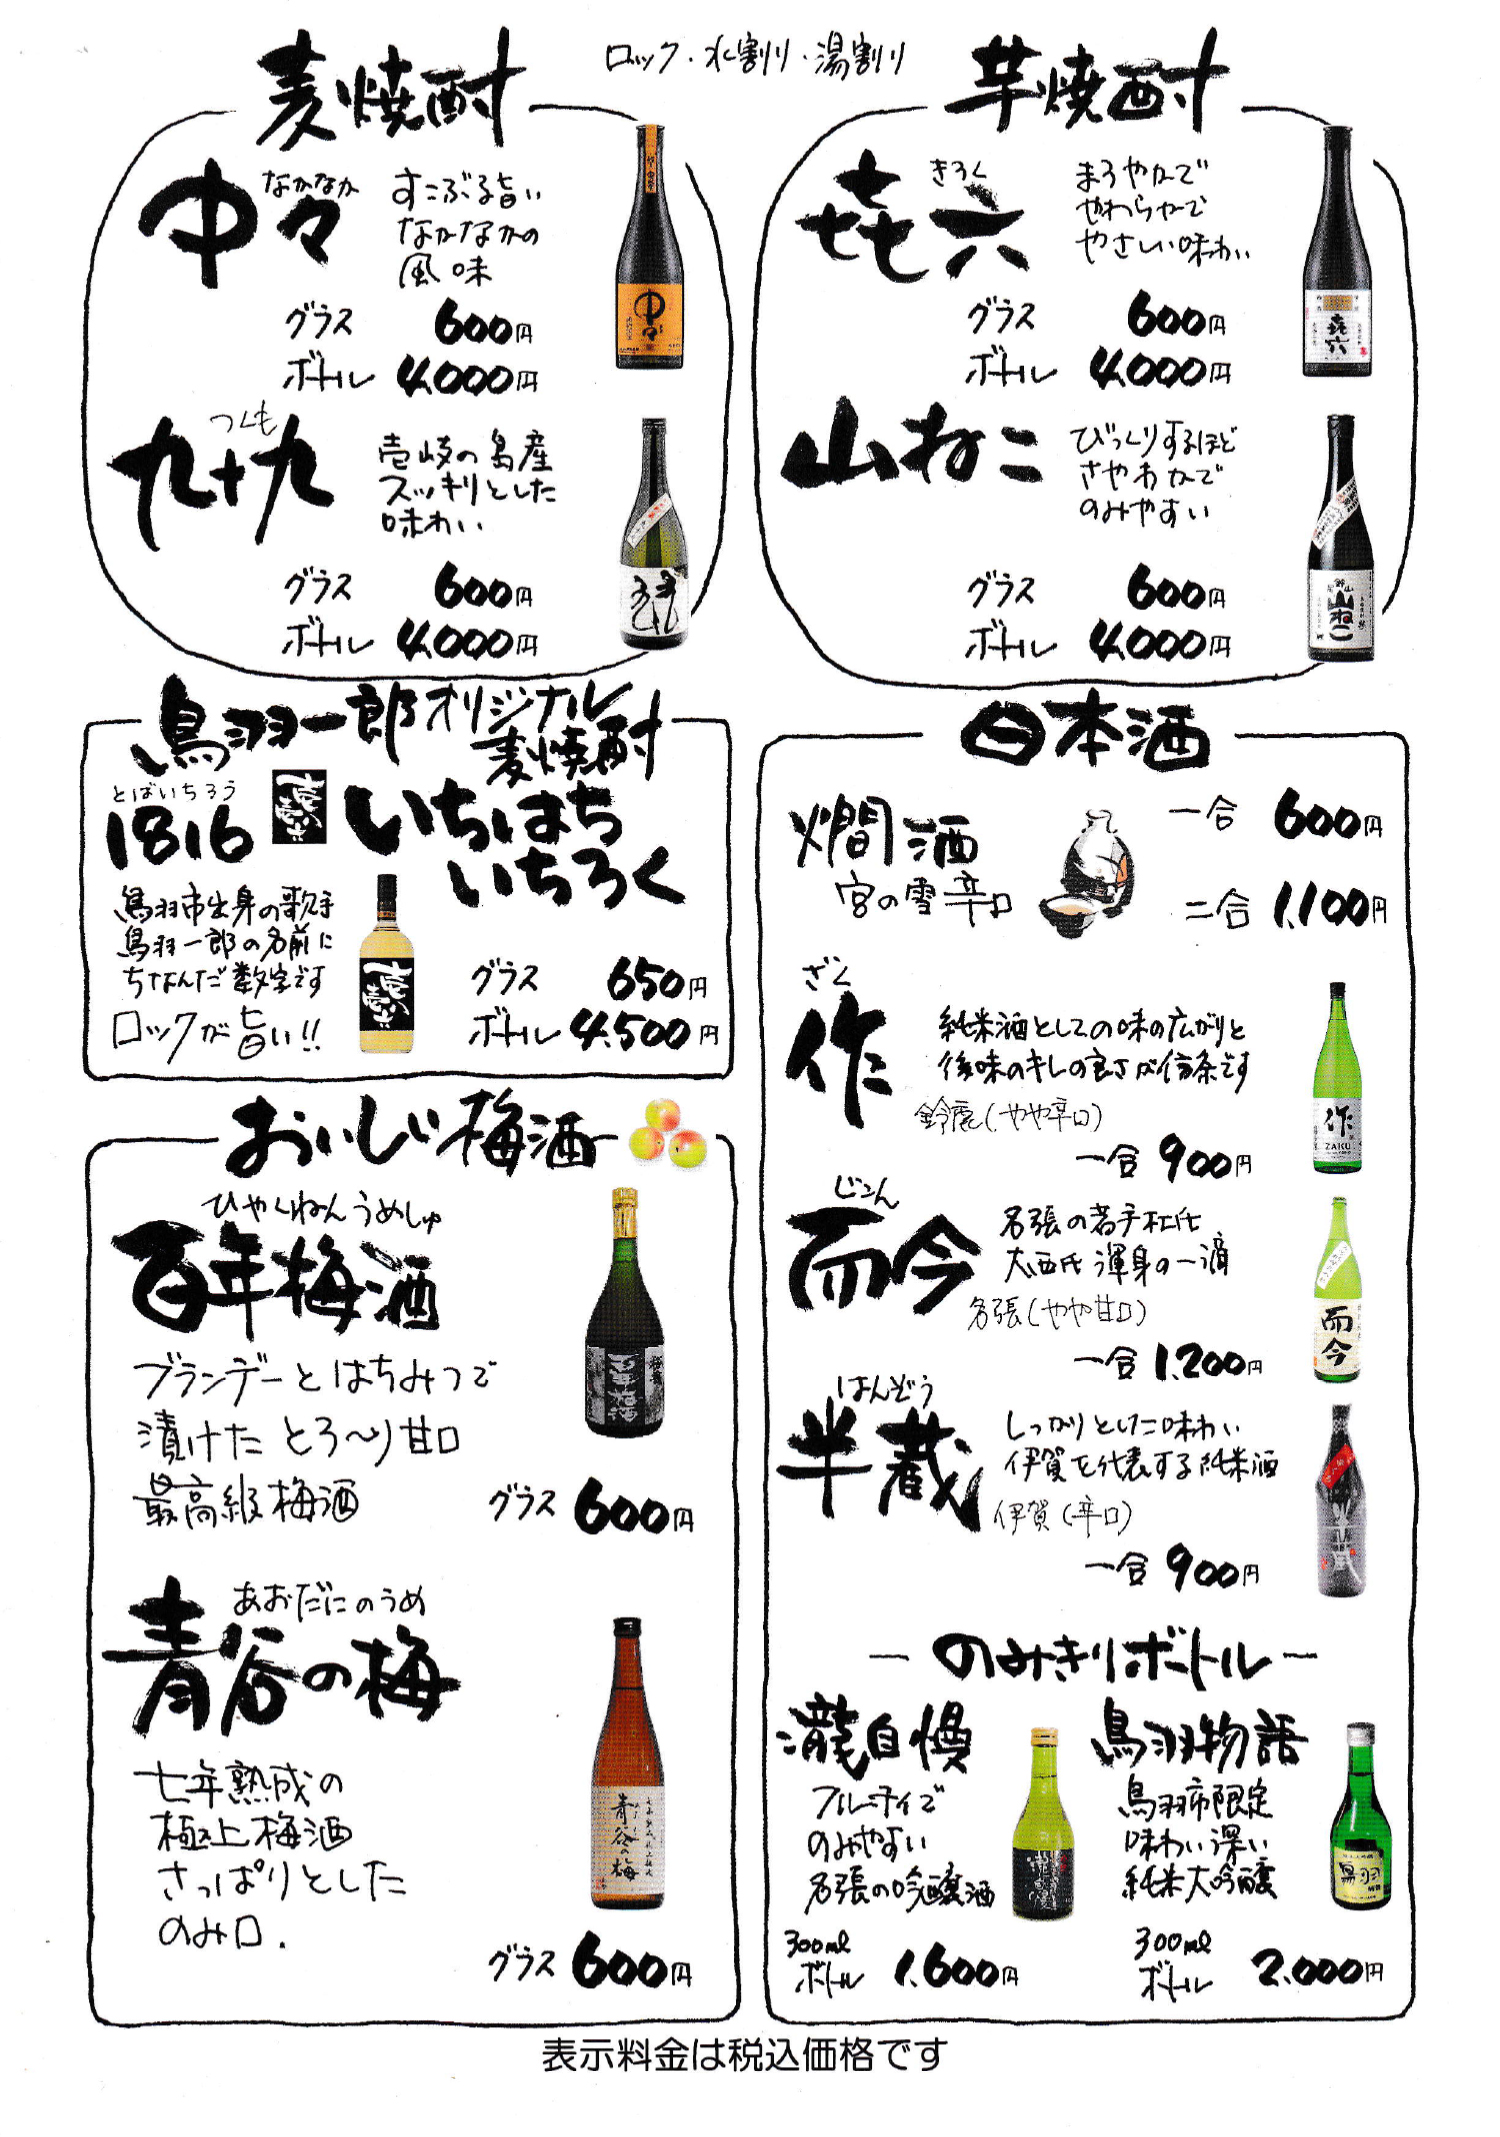 ロック・水割り・湯割り
麦焼酎
なかなか
中々
すこぶる旨い
なかなかの
風味
グラス 600円
ボトル 4,000円
つくも
九十九
壱岐の島産
スッキリとした
味わい
グラス 600円
ボトル 4,000円
芋焼酎
きろく
㐂六
まろやかで
やわらかで
やさしい味わい
グラス 600円
ボトル 4,000円
山ねこ
びっくりするほど
さやわかで
のみやすい
グラス 600円
ボトル 4,000円
鳥羽一郎オリジナル
麦焼酎
とばいちろう
1816
いちはち
いちろく
鳥羽市出身の歌手
鳥羽一郎の名前に
ちなんだ数字です
ロックが旨い!!
グラス 650円
ボトル 4,500円
おいしい梅酒
ひゃくねんうめしゅ
百年梅酒
ブランデーとはちみつで
漬けたとろ〜り甘口
最高級梅酒
グラス 600円
あおだにのうめ
青谷の梅
七年熟成の
極上梅酒
さっぱりとした
のみ口.
グラス 600円
日本酒
燗酒
宮の雪 辛口
一合 600円
二合 1,100円
ざく
作
純米酒としての味の広がりと
後味のキレの良さが信条です
鈴鹿(やや辛口)
一合 900円
作
ZAKU
じこん
而今
名張の若手杜氏
大西氏渾身の一滴
名張(やや甘口)
一合 1,200円
而今
はんぞう
半蔵
しっかりとした味わい
伊賀を代表する純米酒
伊賀(辛口)
一合 900円
－のみきりボトル－
瀧自慢
フルーティで
のみやすい
名張の吟醸酒
300ml
ボトル 1,600円
鳥羽物語
鳥羽市限定
味わい深い
純米大吟醸
300ml
ボトル 2,000円
表示料金は税込価格です